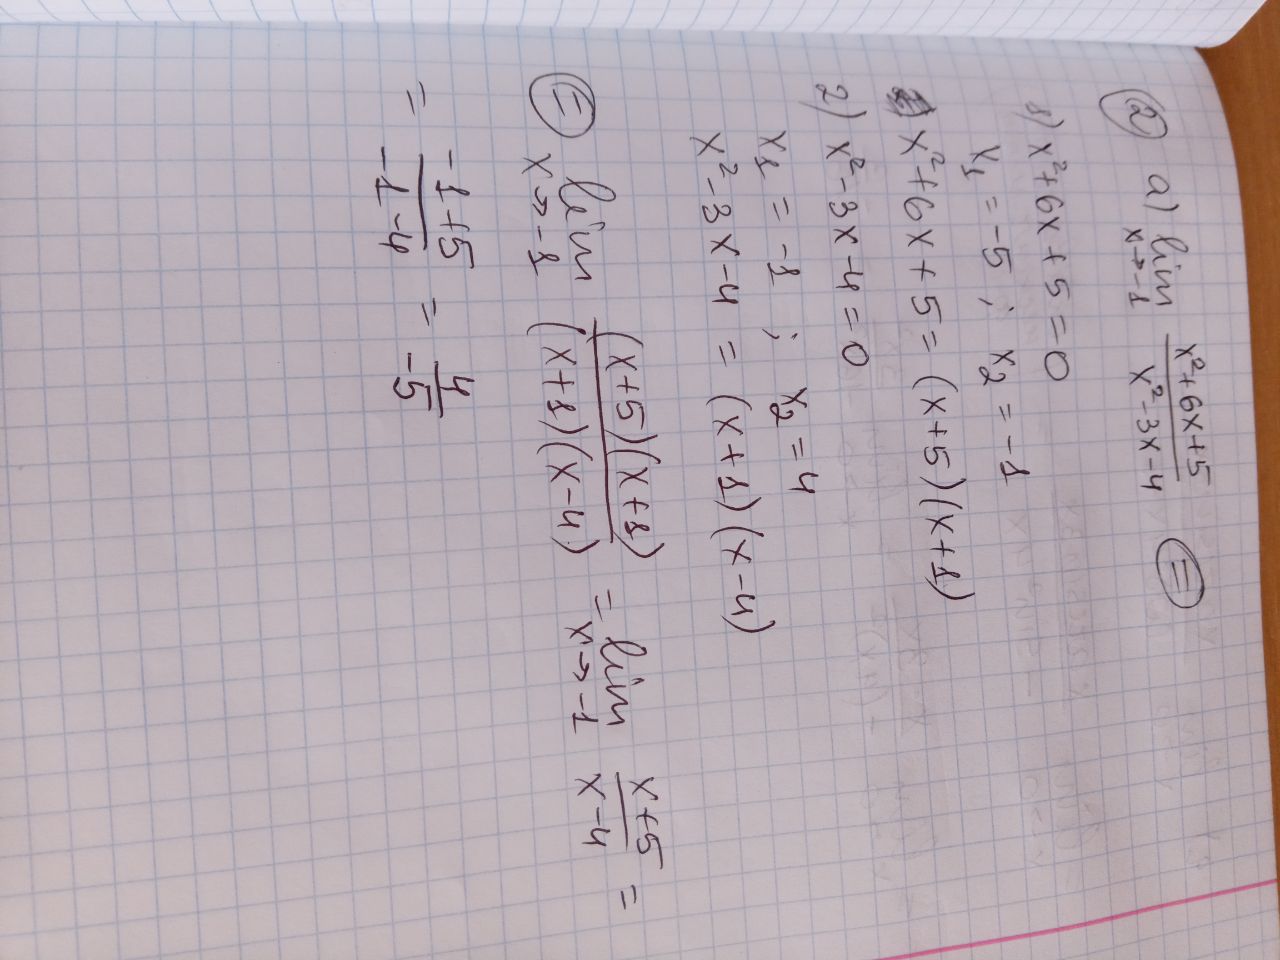 ② a) lim x→-1 (x²+6x+5)/(x²-3x-4) ⊜
1) x²+6x+5=0
x₁ = -5 ; x₂ = -1
x²+6x+5 = (x+5)(x+1)
2) x²-3x-4=0
x₁ = -1 ; x₂ = 4
x²-3x-4 = (x+1)(x-4)
⊜ lim x→-1 ((x+5)(x+1))/((x+1)(x-4)) = lim x→-1 (x+5)/(x-4) =
= (-1+5)/(-1-4) = 4/-5